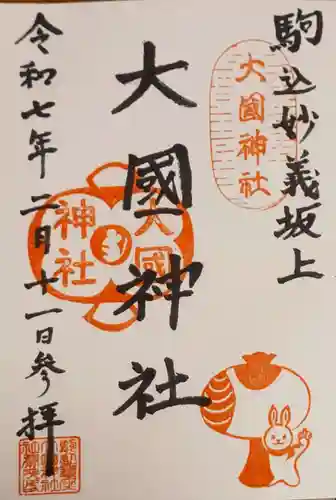 駒込妙義坂上
大國神社
大國神社
大國
神社
令和七年二月十一日参拝